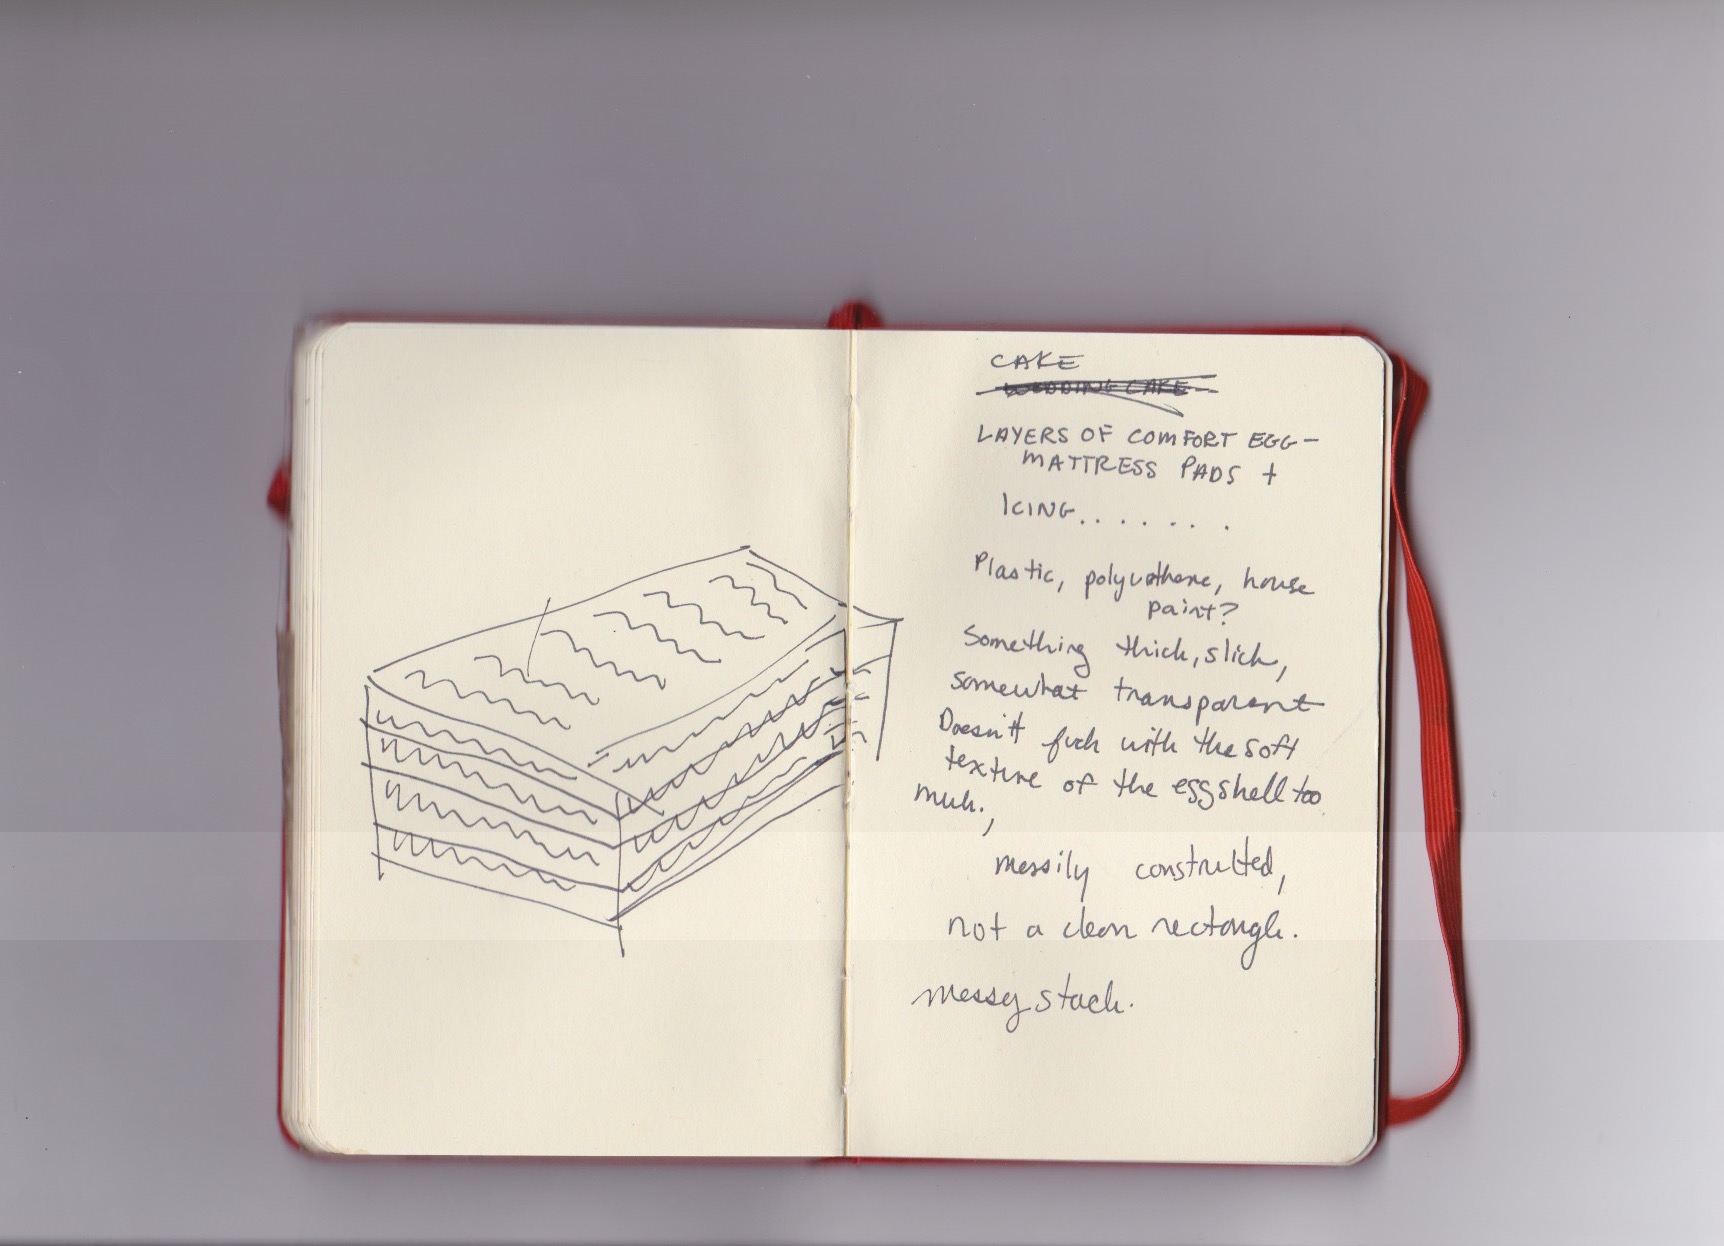 CAKE
WEDDING CAKE
LAYERS OF COMFORT EGG-
MATTRESS PADS +
ICING.......
Plastic, polyurethane, house
paint?
Something thick, slick,
somewhat transparent
Doesn't fuck with the soft
texture of the eggshell too
much,
messily constructed,
not a clean rectangle.
messy stack.